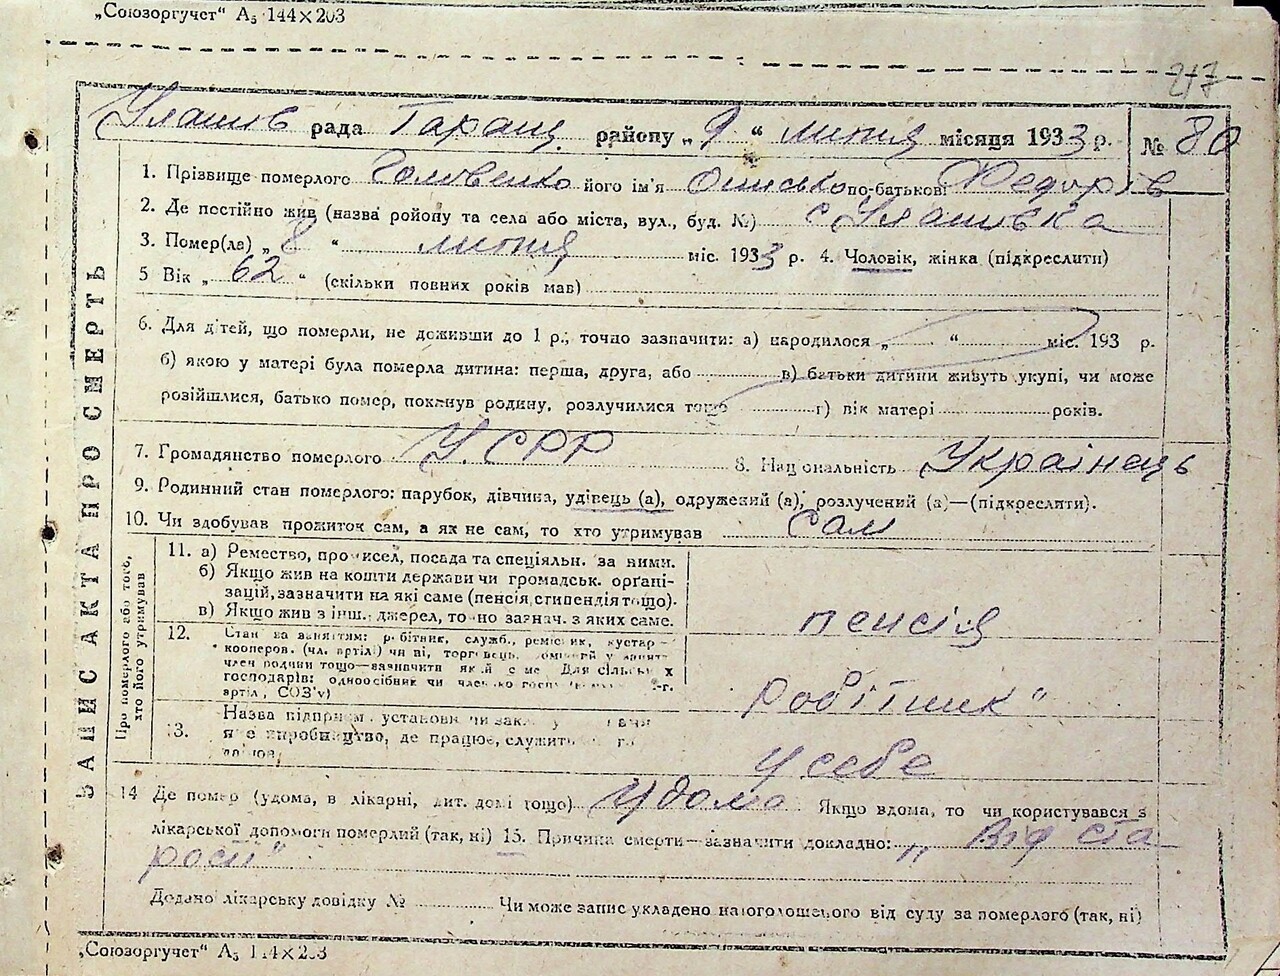 „Союзоргучет“ А₅ 144×203
217
Улашів рада Таращ району „9“ липня місяця 1933 р. № 80
1. Прізвище померлого Головенко його ім'я Онисько по-батькові Федорів
2. Де постійно жив (назва ройону та села або міста, вул., буд. №) с Улашівка
3. Помер(ла) „8“ липня міс. 1933 р. 4. Чоловік, жінка (підкреслити)
5 Вік „62“ (скільки повних років мав)
6. Для дітей, що померли, не доживши до 1 р., точно зазначити: а) народилося „ “ міс. 193 р.
б) якою у матері була померла дитина: перша, друга, або в) батьки дитини живуть укупі, чи може
розійшлися, батько помер, покинув родину, розлучилися тощо г) вік матері років.
7. Громадянство померлого У.СРР 8. Національність Українець
9. Родинний стан померлого: парубок, дівчина, удівець (а), одружений (а), розлучений (а)—(підкреслити).
10. Чи здобував прожиток сам, а як не сам, то хто утримував сам
ЗАПИС АКТА ПРО СМЕРТЬ
Про померлого або того, хто його утримував
11. а) Ремество, промисел, посада та спеціяльн. за ними.
б) Якщо жив на кошти держави чи громадськ. органі-
зацій, зазначити на які саме (пенсія, стипендія тощо).
в) Якщо жив з інш. джерел, точно зазнач. з яких саме.
пенсія
12. Стан за заняттям: робітник, служб., ремісник, кустар
кооперов. (чл. артілі) чи
член родини тощо—зазначити який саме Для сільських
господарів: одноосібник чи член
артіл, СОЗ'у)
робітник"
13. Назва підприєм. установи чи
виробництво, де працює, служить
у себе
14 Де помер (удома, в лікарні, дит. домі тощо) Удома Якщо вдома, то чи користувався з
лікарської допомоги померлий (так, ні) 15. Причина смерти—зазначити докладно: „Від ста
рости"
Додано лікарську довідку № Чи може запис укладено на оголошеного від суду за померлого (так, ні)
„Союзоргучет“ А₅ 144×203